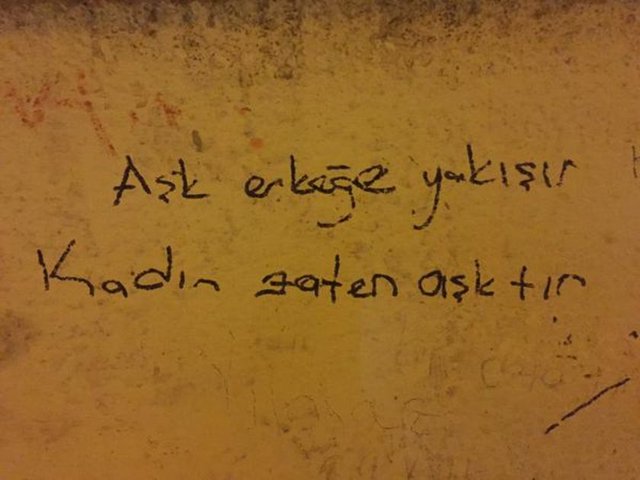 Aşk erkeğe yakışır
Kadın zaten aşktır